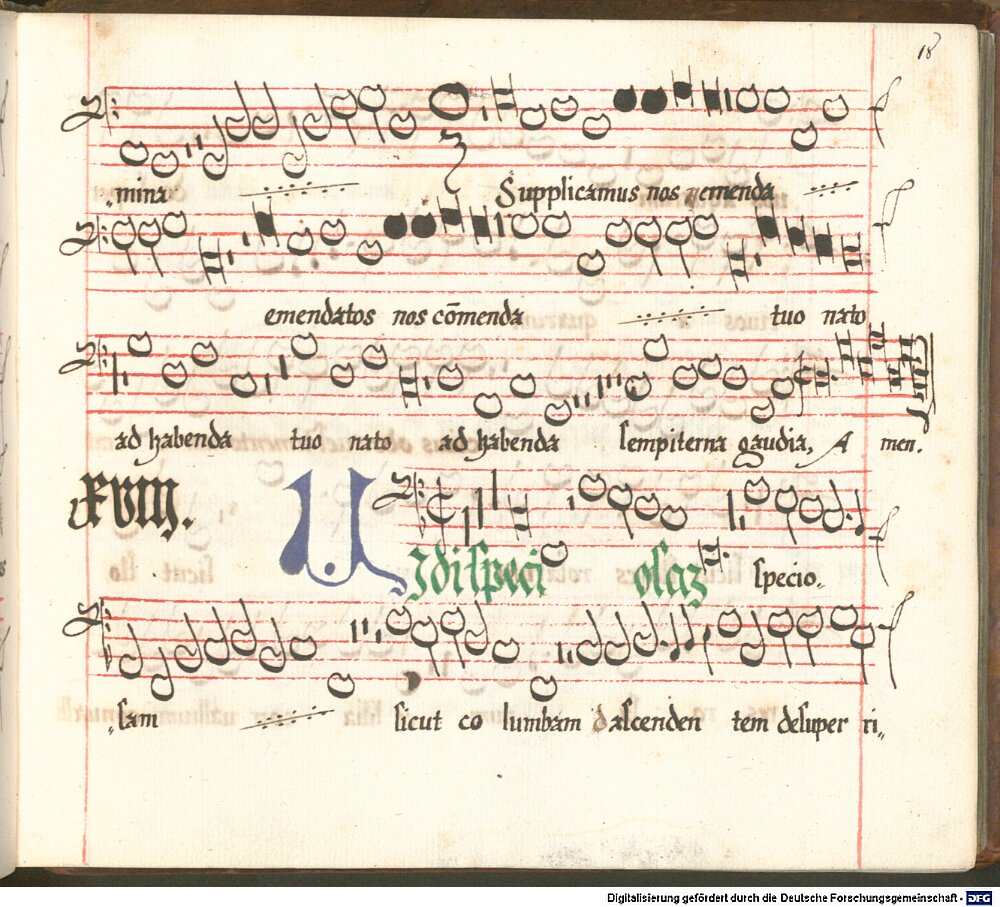 18
„mina Supplicamus nos emenda
emendatos nos cōmenda tuo nato
ad habenda tuo nato ad habenda sempiterna gaudia, A men.
xviij.
VIdi speci osaz specio„
„sam sicut co lumbam dascenden tem desuper ri„
Digitalisierung gefördert durch die Deutsche Forschungsgemeinschaft - DFG